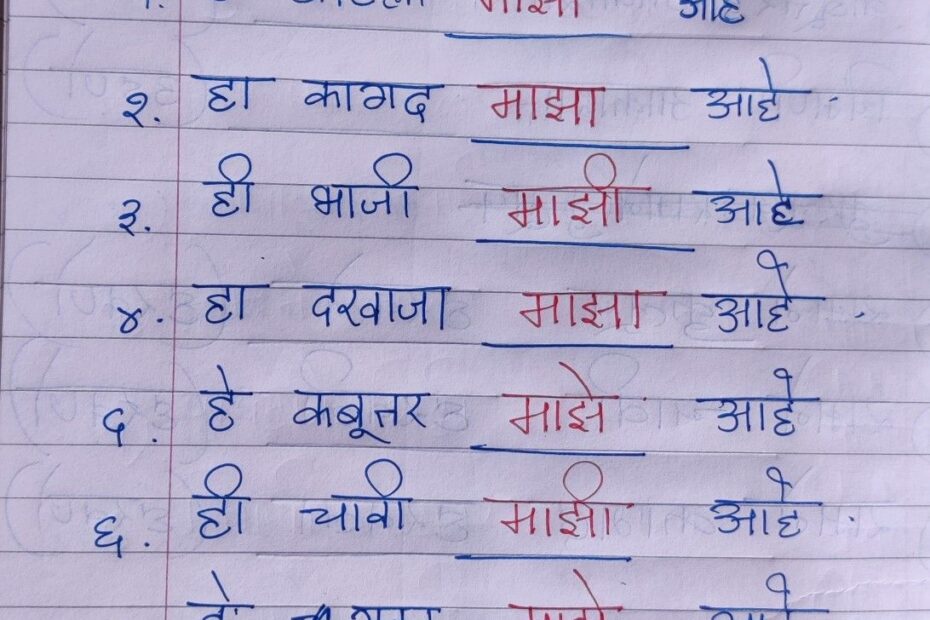 १. माझा आहे
२. हा कागद माझा आहे.
३. ही भाजी माझी आहे.
४. हा दरवाजा माझा आहे.
५. हे कबूतर माझे आहे
६. ही चावी माझी आहे.
हे माझे आहे